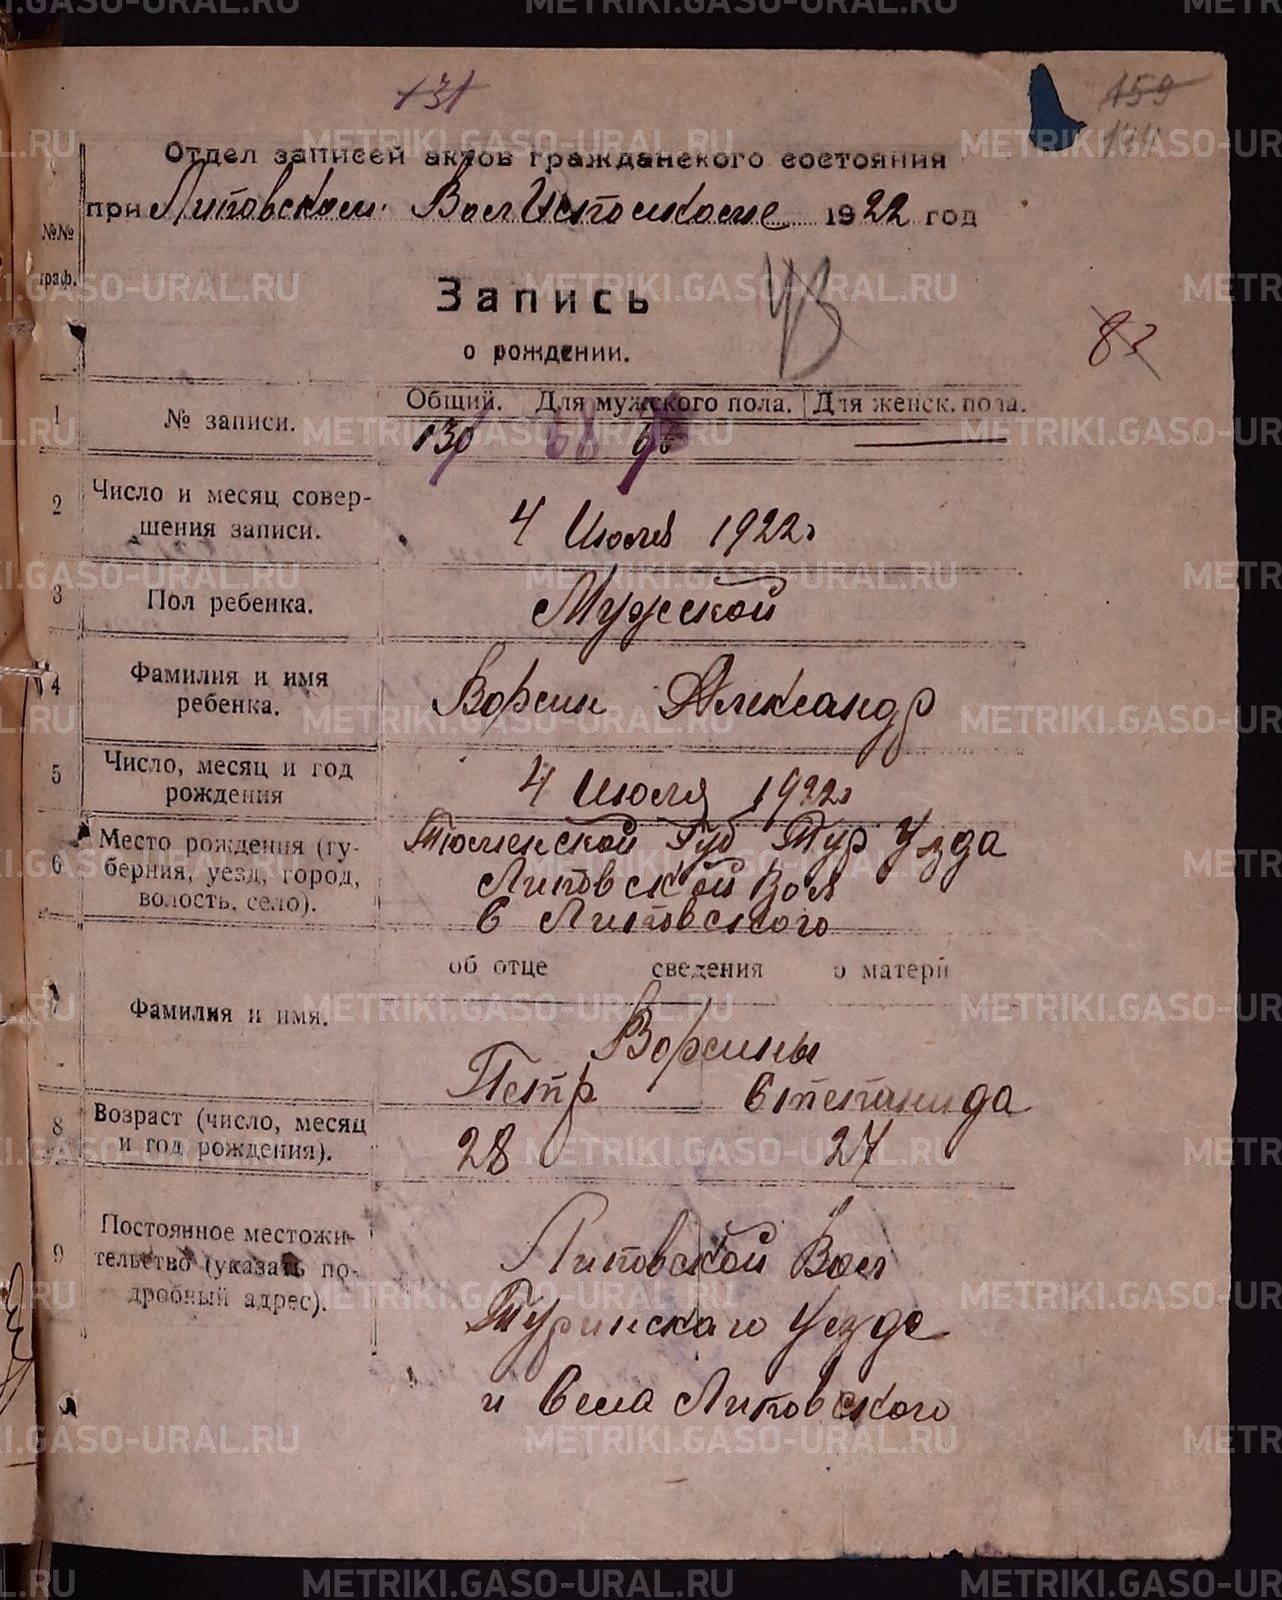 131
159
Отдел записей актов гражданского состояния
при Липовском ВолИсполкоме 1922 год
№№ граф.
Запись
о рождении.
83
1 № записи. Общий. Для мужского пола. Для женск. пола.
130 68
2 Число и месяц совер-
шения записи. 4 Июля 1922г
3 Пол ребенка. Мужской
4 Фамилия и имя
ребенка. Ворсин Александр
5 Число, месяц и год
рождения 4 Июля 1922г
6 Место рождения (гу-
берния, уезд, город,
волость, село). Тюменской Губ Тур Уезда
Липовской Вол
С Липовского
об отце сведения о матери
7 Фамилия и имя. Ворсины
Петр Степанида
8 Возраст (число, месяц
и год рождения). 28 27
9 Постоянное местожи-
тельство (указать по-
дробный адрес). Липовской Вол
Туринскаго Уезда
и Села Липовского
METRIKI.GASO-URAL.RU